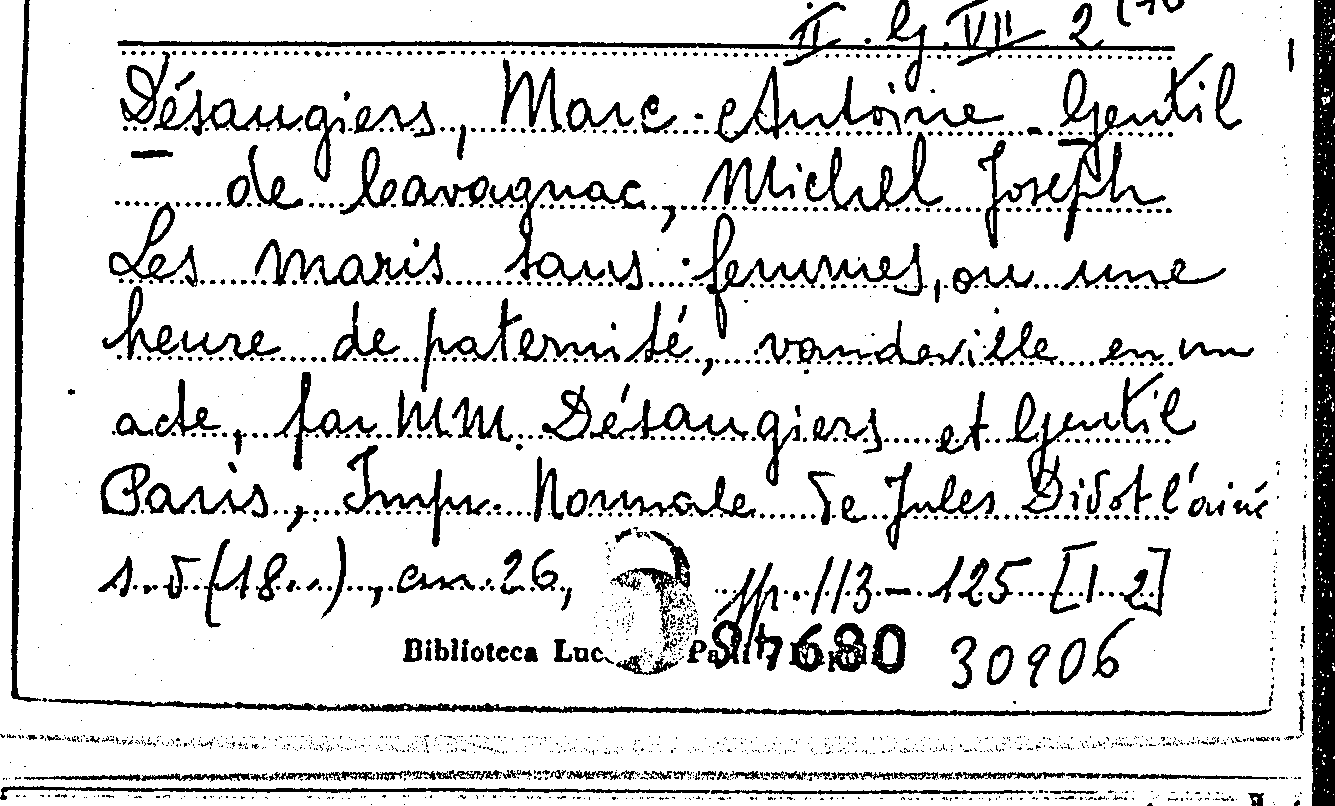 II. G. VII 2
Désaugiers, Marc-Antoine - Gentil
de Cavagnac, Michel Joseph
Les maris sans femmes, ou une
heure de paternité, vaudeville en un
acte, par MM. Désaugiers et Gentil
Paris, Impr. Normale de Jules Didot l'ainé
s. d (18..), cm. 26, pp. 113-125 [1 2]
Biblioteca 87680 30906